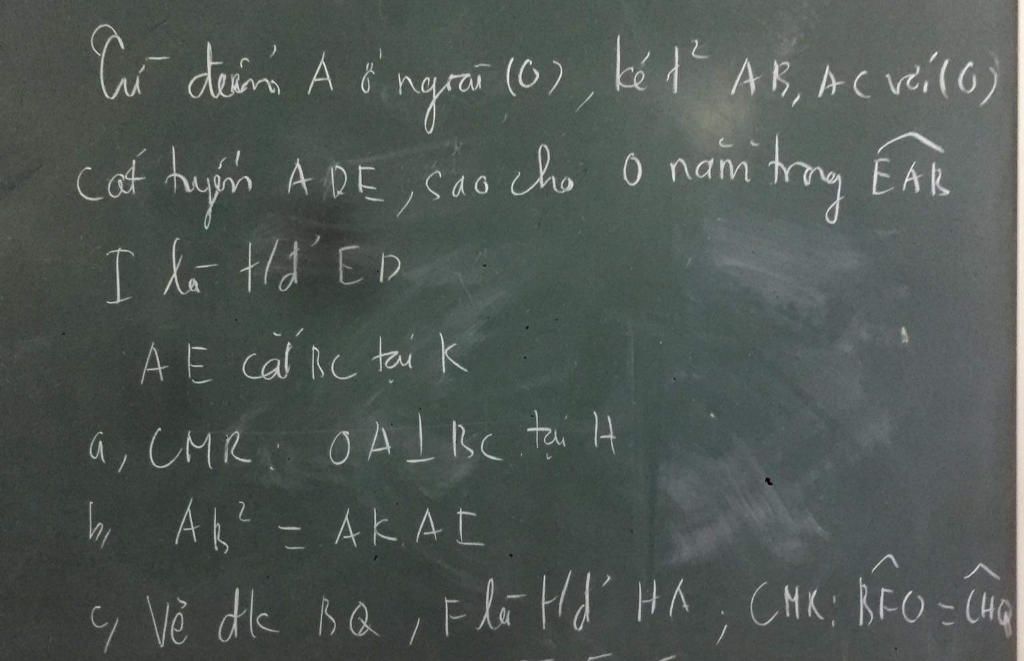 Từ điểm A ở ngoài (O), kẻ t² AB, AC với (O)
cát tuyến ADE, sao cho O nằm trong EAB
I là t/đ' ED
AE cắt BC tại K
a, CMR: OA⊥BC tại H
b, AB² = AK.AI
c, Vẽ đk BQ, F là t/đ' HA; CMR: BFO = CHQ